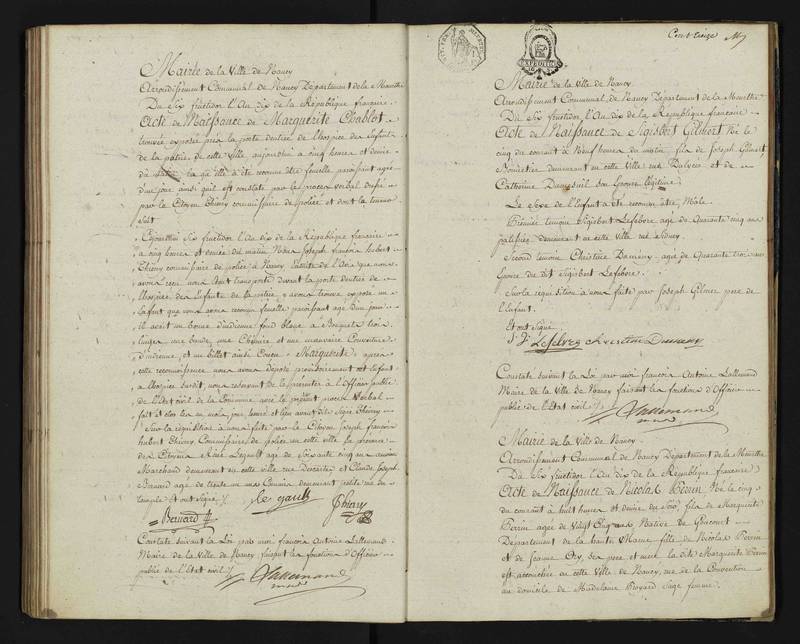 Mairie de la Ville de Nancy
Arrondissement Communal de Nancy Département de la Meurthe
Du Six fructidor l'An dix de la République française.
Acte de Naissance de Marguerite Chablot
trouvée exposée près la porte d'entrée de l'hospice des Enfants
de la patrie de cette Ville aujourd'hui à cinq heures et demie
du matin la qu'elle a été reconnue être femelle paroissant agée
d'un jour ainsi qu'il est constaté par le procès verbal dressé
par le Citoyen Thiery commissaire de police et dont la teneur
Suit
Cejourd'hui Six fructidor l'An dix de la République française
à cinq heures et demie du matin Nous Joseph françois hubert
Thiery commissaire de police à Nancy
avons transporté devant la porte d'entrée de
l'hospice des Enfants de la patrie, y avons trouvé exposé un
Enfant que nous avons reconnu femelle paroissant agée d'un jour
il avoit un bonnet d'indienne fond bleue à Bouquets trois
linges une bande, une Chemise et une mauvaise Couverture
d'indienne, et un billet ainsi Conçu Marguerite après
cette reconnoissance nous avons déposé provisoirement cet Enfant
à l'hospice susdit, nous reservant de le présenter à l'Officier public
de l'Etat civil de la Commune avec le présent procès Verbal
fait et clos les an mois, jour, heure et lieu avant dits Signé Thiery
Sur la réquisition à nous faite par le Citoyen Joseph françois
hubert Thiery Commissaire de police en cette ville En présence
des Citoyens René Legault agé de Soixante cinq ans ancien
Marchand demeurant en cette ville rue Descartes et Claude Joseph
Bernard agé de trente un ans Commis demeurant petite rue du
temple Et ont signé
le gault Thiery
Bernard
Constaté suivant la Loi par moi françois Antoine Lallemand
Maire de la Ville de Nancy faisant les fonctions d'Officier
public de l'Etat civil
Lallemand
Cent treize
Mairie de la Ville de Nancy
Arrondissement Communal, de Nancy Département de la Meurthe
Du Six fructidor l'An dix de la République françoise
Acte de Naissance de Sigisbert Gilmert Né le
cinq du courant à Neuf heures du matin fils de Joseph Gilmert
demeurant en cette Ville rue et de
Catherine Dumesnil son Epouse légitime
Le Sexe de l'Enfant a été reconnu être Mâle
Premier temoin Sigisbert Lefebvre agé de Quarante cinq ans
patissier demeurant en cette Ville rue
Second temoin Christine Dumeny agée de Quarante trois ans
Epouse du dit Sigisbert Lefebvre.
Sur la réquisition à nous faite par Joseph Gilmer pere de
l'Enfant.
Et ont Signé
Lefebvre Chrestine Dumeny
Constaté suivant la Loi par moi françois Antoine Lallemand
Maire de la Ville de Nancy faisant les fonctions d'Officier
public de l'Etat civil
Lallemand
Mairie de la Ville de Nancy
Arrondissement Communal de Nancy Département de la Meurthe
Du Six fructidor l'An dix de la République françoise
Acte de Naissance de Nicolas Perrin Né le cinq
du courant à huit heures et demie du Soir, fils de Marguerite
Perrin agée de Vingt Cinq ans Native de Goncourt
Département de la haute Marne fille de Nicolas Perrin
et de Jeanne Ory, ses pere et mere la dite Marguerite Perrin
est accouchée en cette Ville de Nancy, rue de la Convention
au domicile de Madelaine Sage femme.